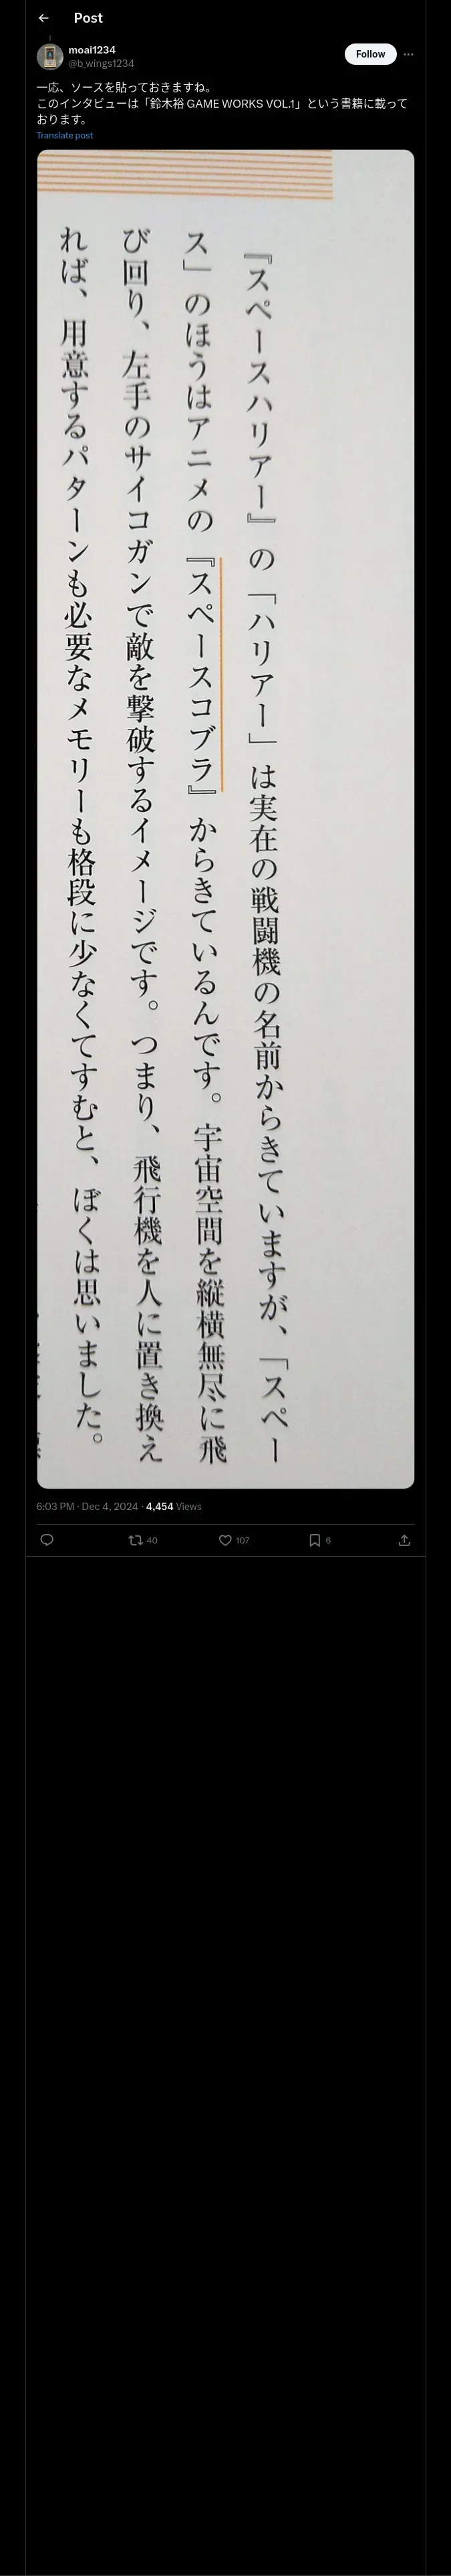 Post
moai1234
@b_wings1234
Follow
一応、ソースを貼っておきますね。
このインタビューは「鈴木裕 GAME WORKS VOL.1」という書籍に載って
おります。
Translate post
『スペースハリアー』の「ハリアー」は実在の戦闘機の名前からきていますが、「スペー
ス」のほうはアニメの『スペースコブラ』からきているんです。宇宙空間を縦横無尽に飛
び回り、左手のサイコガンで敵を撃破するイメージです。つまり、飛行機を人に置き換え
れば、用意するパターンも必要なメモリーも格段に少なくてすむと、ぼくは思いました。
6:03 PM · Dec 4, 2024 · 4,454 Views
40
107
6